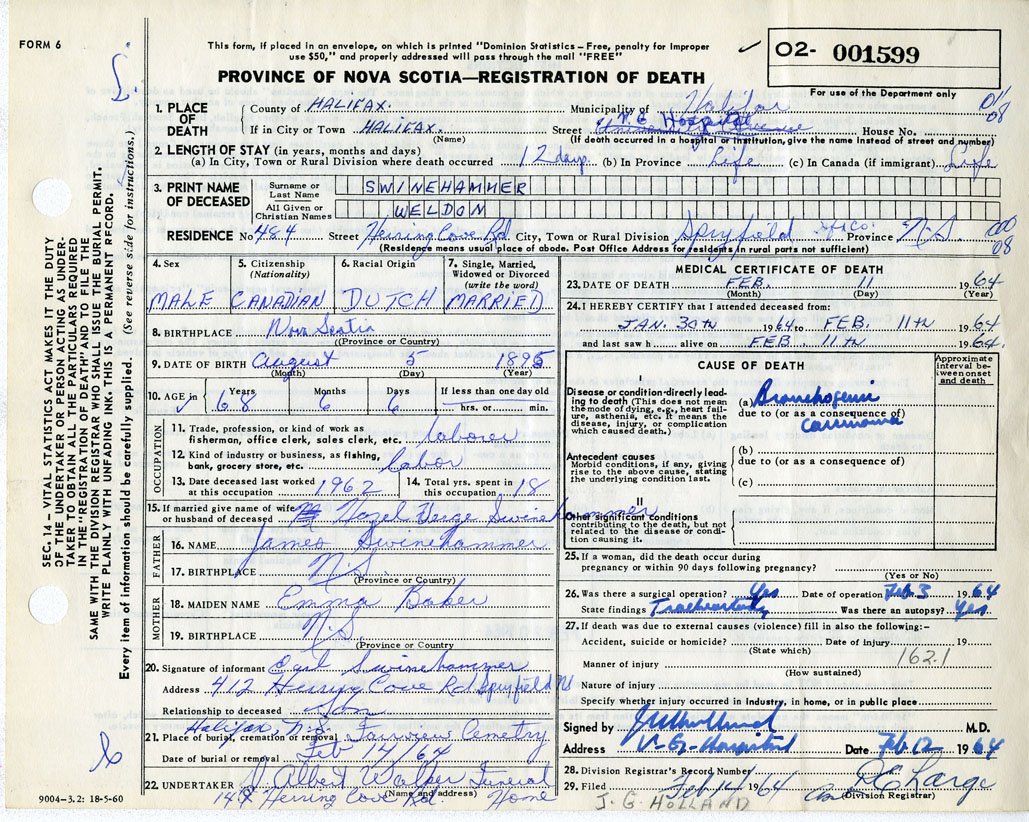 FORM 6
This form, if placed in an envelope, on which is printed "Dominion Statistics – Free, penalty for improper
use $50," and properly addressed will pass through the mail "FREE"
O2- 001599
For use of the Department only
PROVINCE OF NOVA SCOTIA—REGISTRATION OF DEATH
SEC. 14 – VITAL STATISTICS ACT MAKES IT THE DUTY
OF THE UNDERTAKER OR PERSON ACTING AS UNDER-
TAKER TO OBTAIN ALL THE PARTICULARS REQUIRED
IN THE "REGISTRATION OF DEATH" AND TO FILE THE
SAME WITH THE DIVISION REGISTRAR WHO SHALL ISSUE THE BURIAL PERMIT.
WRITE PLAINLY WITH UNFADING INK. THIS IS A PERMANENT RECORD.
Every item of information should be carefully supplied. (See reverse side for instructions.)
1. PLACE OF DEATH
County of HALIFAX. Municipality of Halifax
08
If in City or Town HALIFAX. Street V. G. Hospital House No.
(Name) (If death occurred in a hospital or institution, give the name instead of street and number)
2. LENGTH OF STAY (in years, months and days)
(a) In City, Town or Rural Division where death occurred 12 days (b) In Province Life (c) In Canada (if immigrant) Life
3. PRINT NAME OF DECEASED
Surname or Last Name SWINEHAMMER
All Given or Christian Names WELDON
RESIDENCE No 484 Street Herring Cove Rd City, Town or Rural Division Spryfield Hfx Co. Province N.S.
08
(Residence means usual place of abode. Post Office Address for residents in rural parts not sufficient)
4. Sex MALE
5. Citizenship (Nationality) CANADIAN
6. Racial Origin DUTCH
7. Single, Married, Widowed or Divorced (write the word) MARRIED
8. BIRTHPLACE Nova Scotia
(Province or Country)
9. DATE OF BIRTH August 5 1895
(Month) (Day) (Year)
10. AGE in Years 68 Months 6 Days 6 If less than one day old hrs. or min.
OCCUPATION
11. Trade, profession, or kind of work as fisherman, office clerk, sales clerk, etc. laborer
12. Kind of industry or business, as fishing, bank, grocery store, etc. labor
13. Date deceased last worked at this occupation 1962
14. Total yrs. spent in this occupation 18
15. If married give name of wife or husband of deceased Swinehammer
FATHER
16. NAME James Swinehammer
17. BIRTHPLACE N.S.
(Province or Country)
MOTHER
18. MAIDEN NAME Emma Baker
19. BIRTHPLACE N.S.
(Province or Country)
20. Signature of informant Earl Swinehammer
Address 412 Herring Cove Rd Spryfield NS
Relationship to deceased Son
Halifax, N.S.
21. Place of burial, cremation or removal Fairview Cemetry
Date of burial or removal Feb 14/64
22. UNDERTAKER Albert Walker Funeral Home
(Name and address)
Herring Cove Rd.
9004-3.2: 18-5-60
MEDICAL CERTIFICATE OF DEATH
23. DATE OF DEATH FEB. 11 1964
(Month) (Day) (Year)
24. I HEREBY CERTIFY that I attended deceased from:
JAN. 30TH 1964 to FEB. 11TH 1964
and last saw h alive on FEB 11TH 1964.
CAUSE OF DEATH
Approximate interval between onset and death
I
Disease or condition directly leading to death (This does not mean the mode of dying, e.g., heart failure, asthenia, etc. It means the disease, injury, or complication which caused death.)
(a) Bronchogenic
due to (or as a consequence of)
carcinoma
Antecedent causes
Morbid conditions, if any, giving rise to the above cause, stating the underlying condition last.
(b)
due to (or as a consequence of)
(c)
II
Other significant conditions contributing to the death, but not related to the disease or condition causing it.
25. If a woman, did the death occur during pregnancy or within 90 days following pregnancy?
(Yes or No)
26. Was there a surgical operation? Yes Date of operation Feb 3 1964
State findings Was there an autopsy? Yes.
27. If death was due to external causes (violence) fill in also the following:–
Accident, suicide or homicide? Date of injury 19
(State which)
162.1
Manner of injury
(How sustained)
Nature of injury
Specify whether injury occurred in industry, in home, or in public place
Signed by M.D.
Address V.G. Hospital Date Feb 12 1964
28. Division Registrar's Record Number
29. Filed Feb 14 1964
(Division Registrar)
J. G. HOLLAND